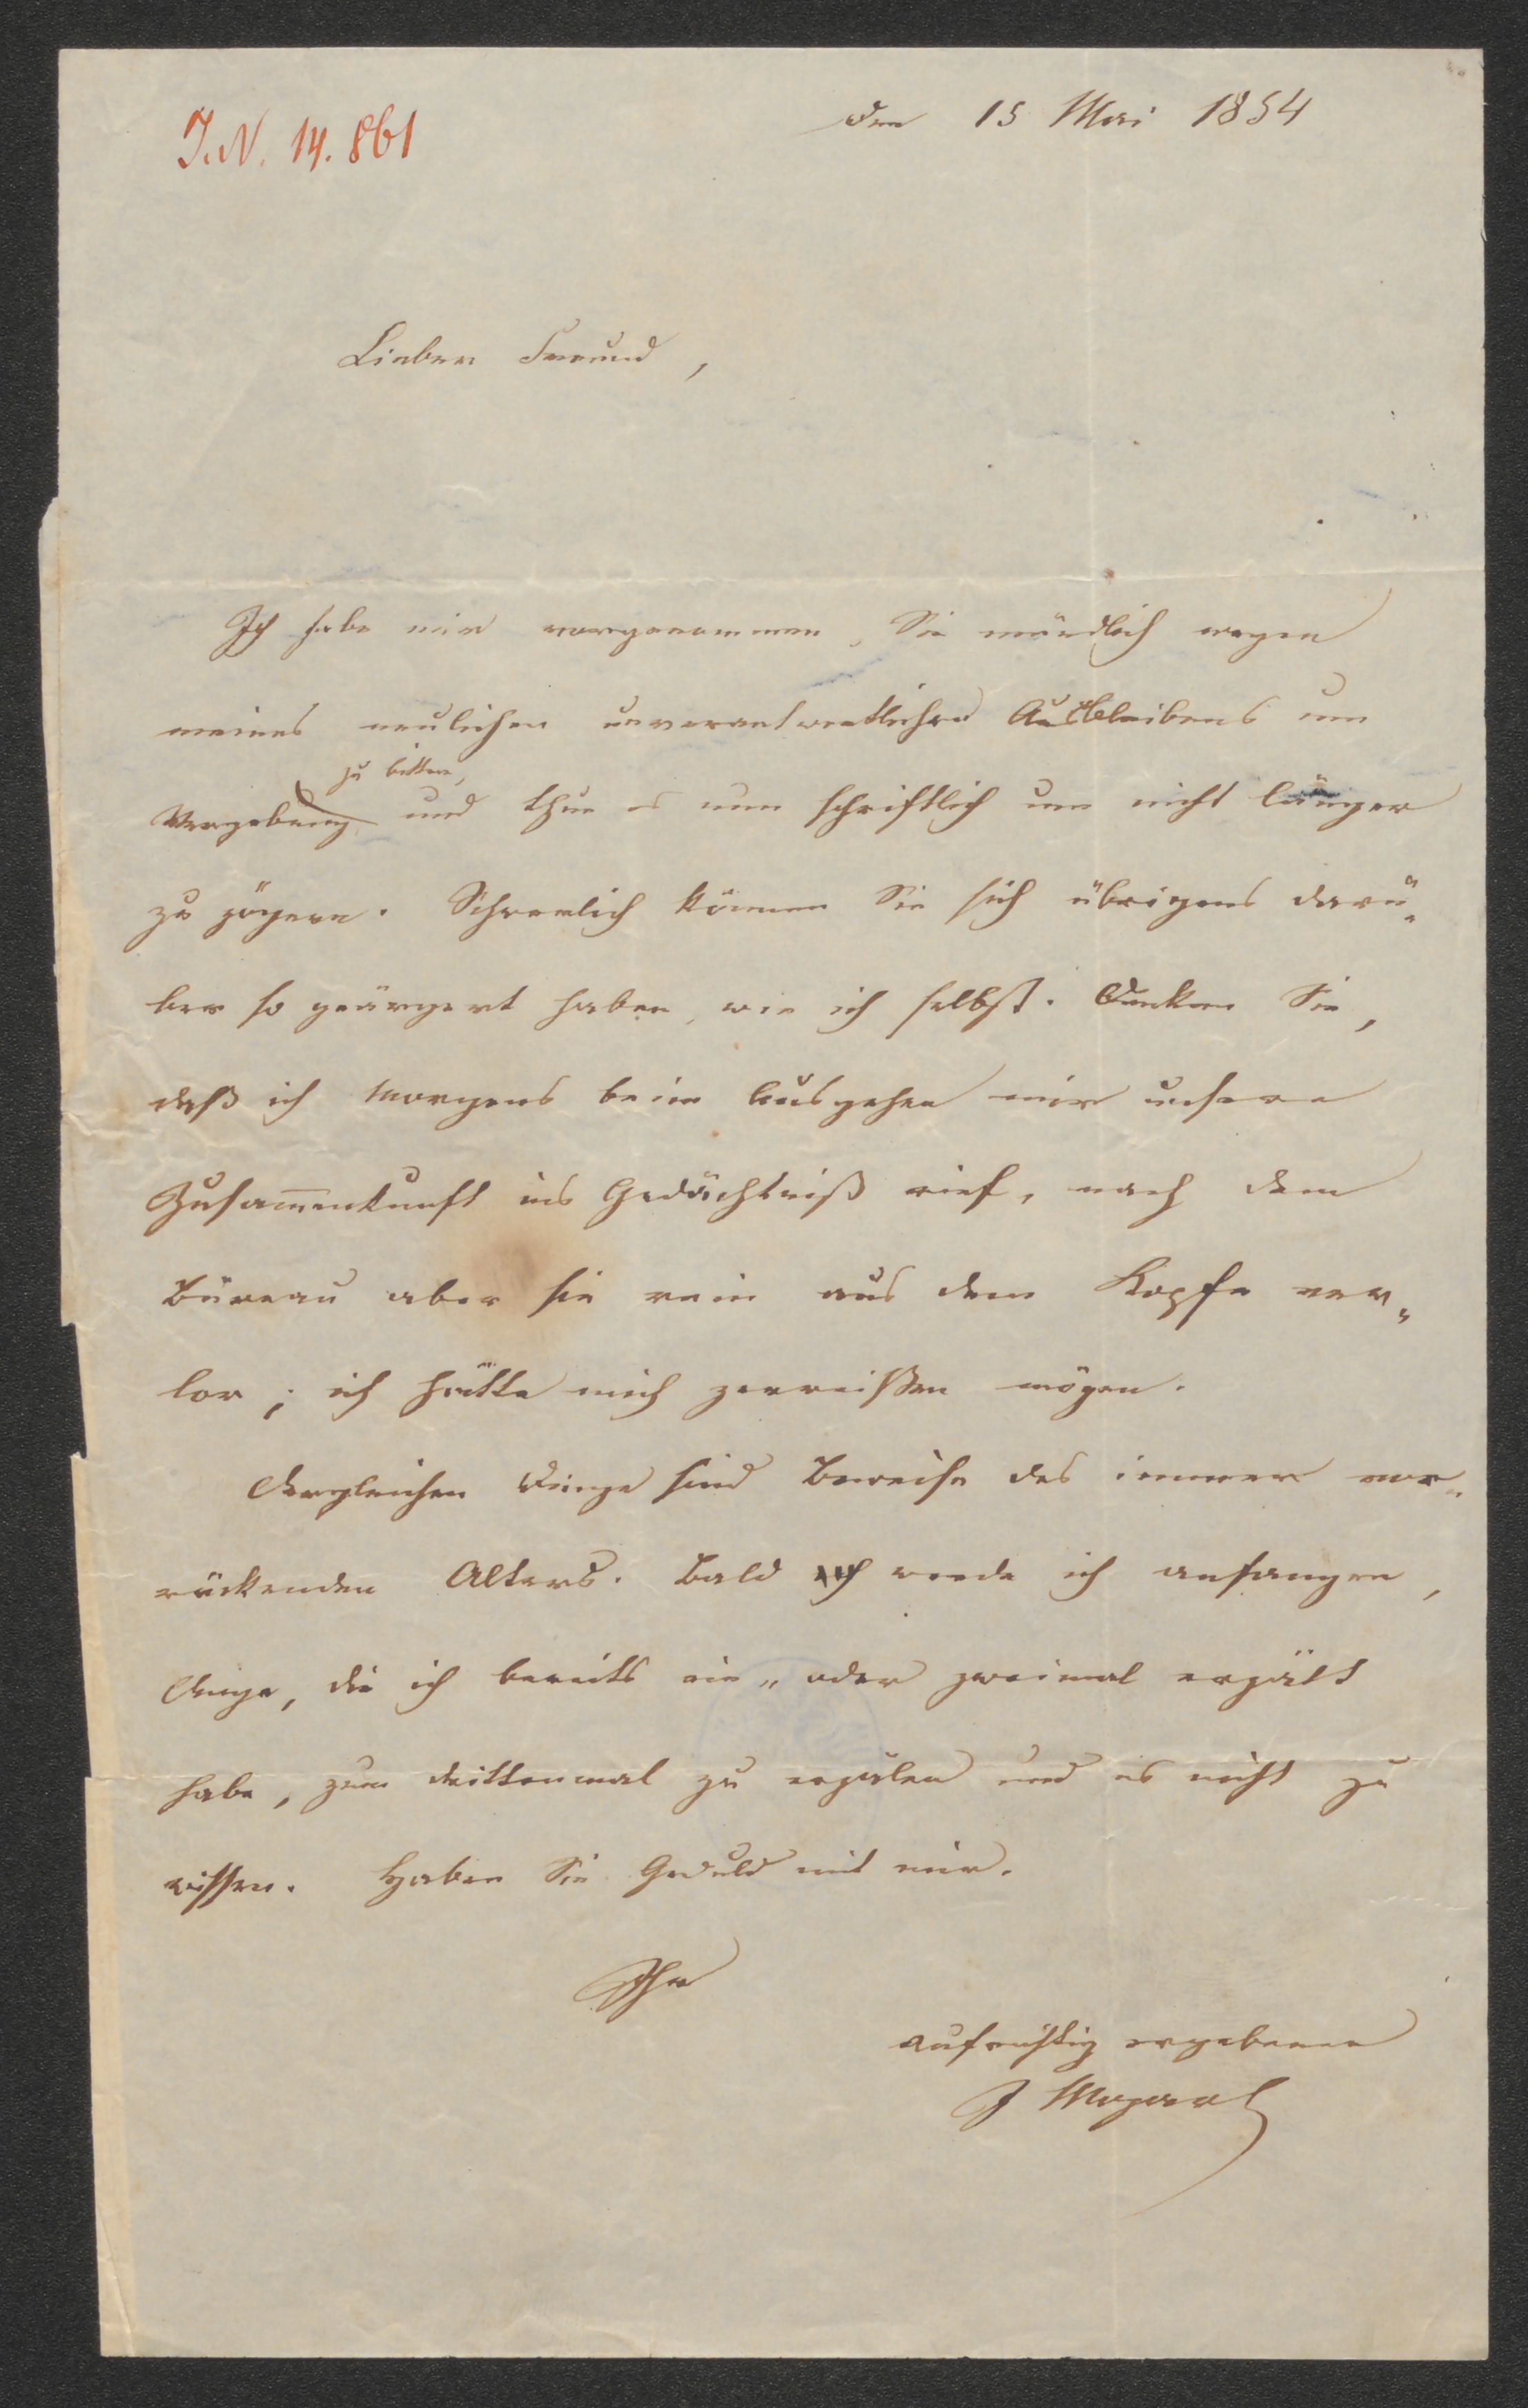 J.N. 14.861
Den 15 Mai 1854
Lieber Freund,
Ich habe mir vorgenommen, Sie mündlich wegen
meines neulichen unverantwortlichen Ausbleibens um
zu bitten,
Vergebung und thue es nun schriftlich um nicht länger
zu zögern. Schwerlich können Sie sich übrigens darü„
ber so geärgert haben, wie ich selbst. Denken Sie,
daß ich Morgens beim Ausgehen mir unsere
Zusam̅enkunft ins Gedächtniß rief, nach dem
Büreau aber sie rein aus dem Kopfe ver„
lor; ich hätte mich zerreißen mögen.
Dergleichen Dinge sind Beweise des immer vor„
rückenden Alters. Bald werde ich anfangen,
Dinge, die ich bereits ein„ oder zweimal erzält
habe, zum drittenmal zu erzälen und es nicht zu
wissen. Haben Sie Geduld mit mir.
Ihr
aufrichtig ergebener